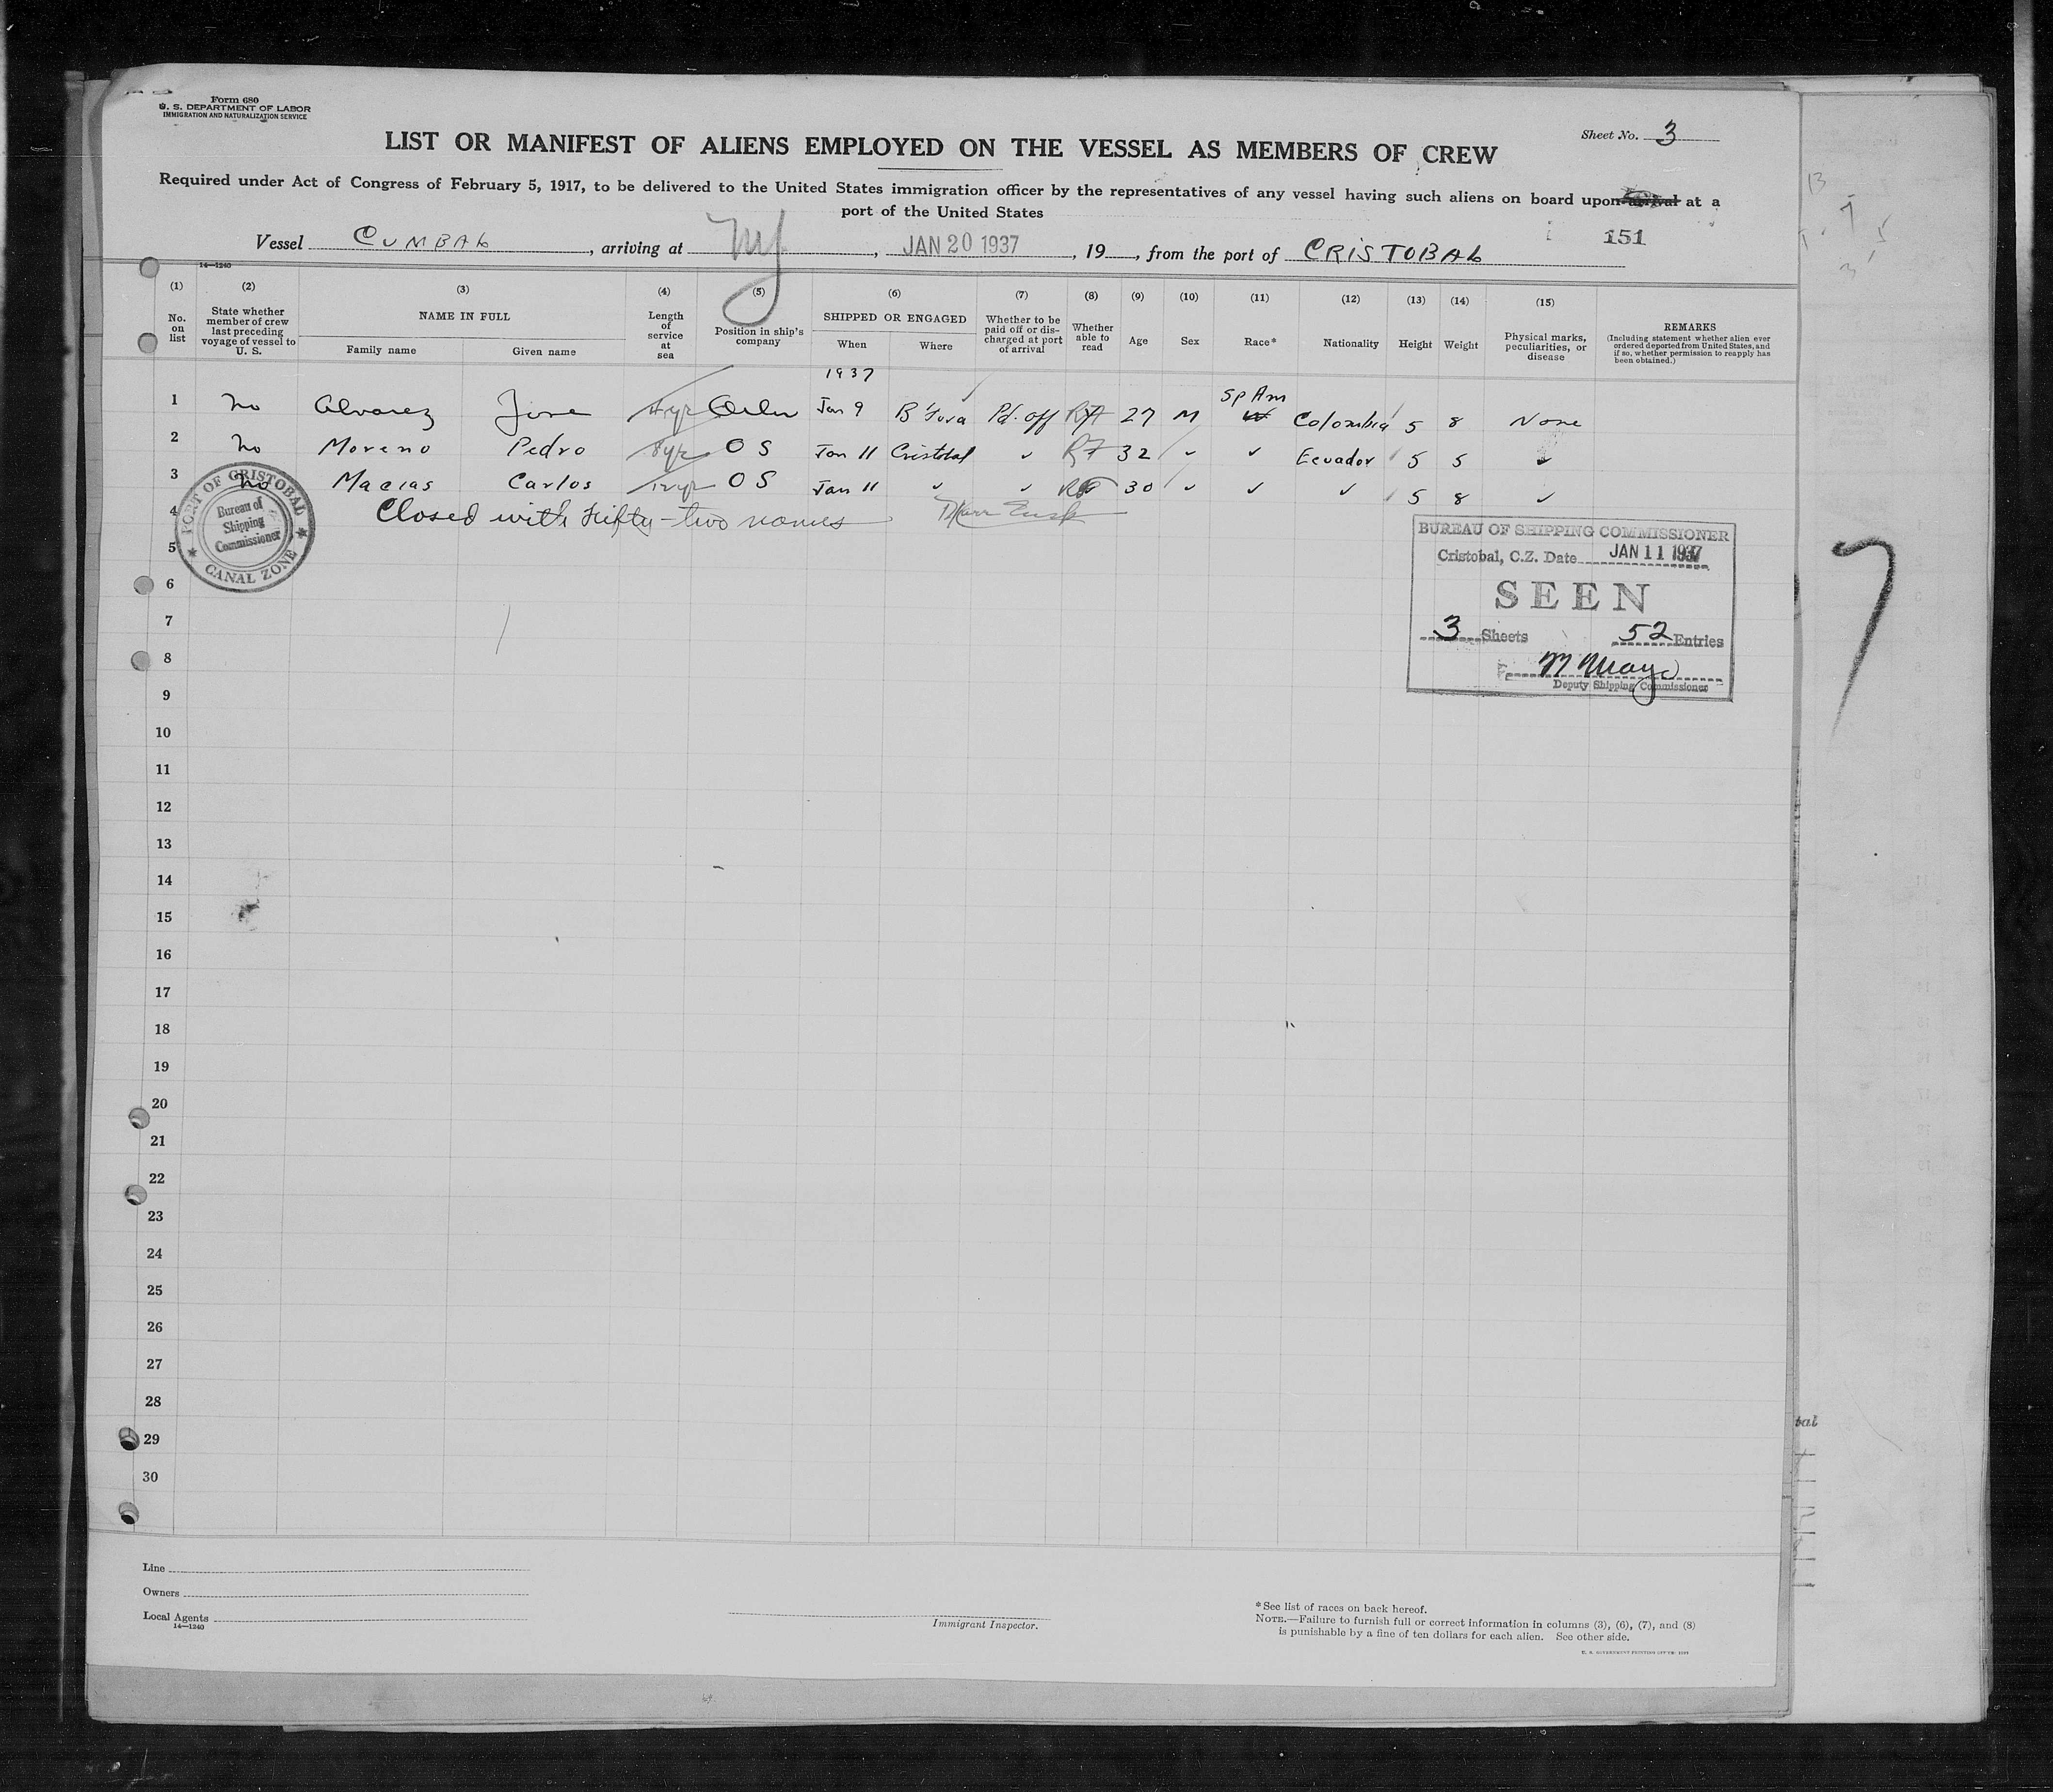 Form 680
U. S. DEPARTMENT OF LABOR
IMMIGRATION AND NATURALIZATION SERVICE
Sheet No. 3
LIST OR MANIFEST OF ALIENS EMPLOYED ON THE VESSEL AS MEMBERS OF CREW
Required under Act of Congress of February 5, 1917, to be delivered to the United States immigration officer by the representatives of any vessel having such aliens on board upon arrival at a
port of the United States
151
Vessel CUMBAL, arriving at NY, JAN 20 1937, 19, from the port of CRISTOBAL
14—1240
(1) (2) (3) (4) (5) (6) (7) (8) (9) (10) (11) (12) (13) (14) (15)
No. on list
State whether member of crew last preceding voyage of vessel to U. S.
NAME IN FULL
Family name Given name
Length of service at sea
Position in ship's company
SHIPPED OR ENGAGED
When Where
Whether to be paid off or discharged at port of arrival
Whether able to read
Age
Sex
Race*
Nationality
Height
Weight
Physical marks, peculiarities, or disease
REMARKS
(Including statement whether alien ever ordered deported from United States, and if so, whether permission to reapply has been obtained.)
1937
1 No Alvarez Jose 4yr Jan 9 Pd. off 27 M Sp Am Colombia 5 8 None
2 No Moreno Pedro 8yr O S Jan 11 Cristobal ✓ 32 ✓ ✓ Ecuador 5 5 ✓
3 No Macias Carlos O S Jan 11 ✓ ✓ 30 ✓ ✓ ✓ 5 8 ✓
4 Closed with fifty-two names
PORT OF CRISTOBAL
Bureau of
Shipping
Commissioner
CANAL ZONE
BUREAU OF SHIPPING COMMISSIONER
Cristobal, C.Z. Date JAN 11 1937
SEEN
3 Sheets 52 Entries
M Mayo
Deputy Shipping Commissioner
5
6
7
8
9
10
11
12
13
14
15
16
17
18
19
20
21
22
23
24
25
26
27
28
29
30
Line
Owners
Local Agents
14—1240
Immigrant Inspector.
*See list of races on back hereof.
NOTE.—Failure to furnish full or correct information in columns (3), (6), (7), and (8)
is punishable by a fine of ten dollars for each alien. See other side.